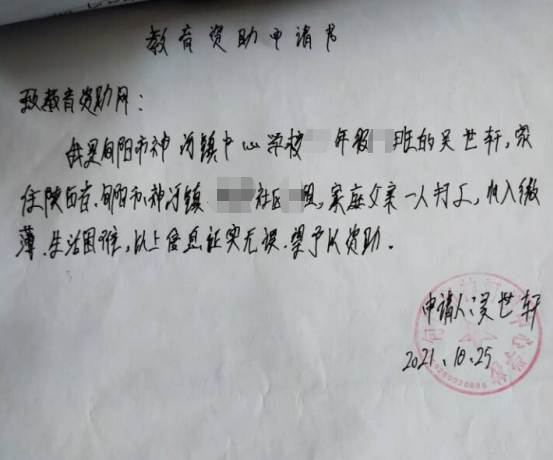 教育资助申请书
致教育资助网：
我是旬阳市神河镇中心学校 年级 班的吴世轩，家
住陕西省、旬阳市、神河镇 社区 组，家庭父亲一人打工，收入微
薄、生活困难，以上信息证实无误.望予以资助.
申请人：吴世轩
2021.10.25